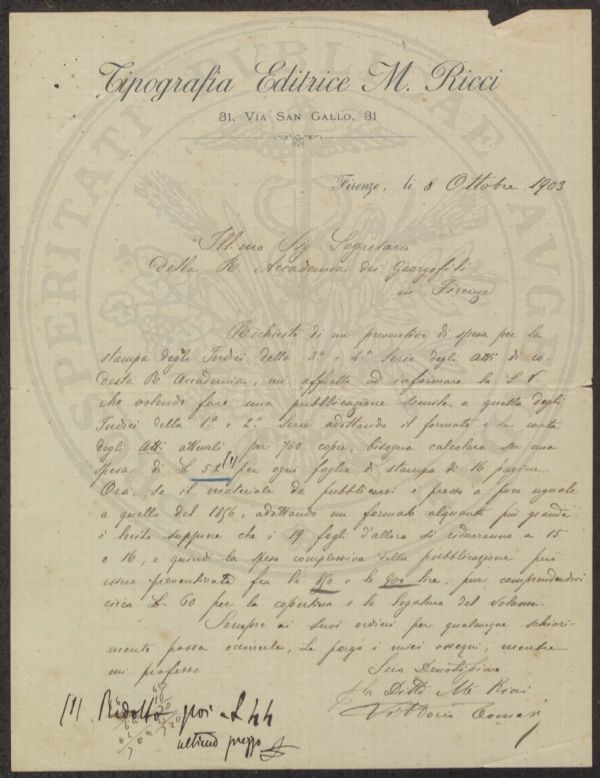 Tipografia Editrice M. Ricci
31, Via San Gallo, 31
Firenze, li 8 Ottobre 1903
Ill.mo Sig Segretario
della R. Accademia dei Georgofili
in Firenze
Richiesto di un preventivo di spesa per la
stampa degli Indici della 3ª e 4ª Serie degli Atti di co-
desta R. Accademia, mi affretto ad informare la S. V.
che volendo fare una pubblicazione simile a quella degli
Indici della 1ª e 2ª Serie adottando il formato e la carta
degli Atti attuali per 750 copie, bisogna calcolare su una
spesa di £ 52 (1) per ogni foglio di stampa di 16 pagine.
Ora, se il materiale da pubblicarsi è presso a poco uguale
a quello del 1856, adottando un formato alquanto più grande
è lecito supporre che i 19 fogli d'allora si ridurranno a 15
o 16, e quindi la spesa complessiva della pubblicazione può
essere preventivata fra le 850 e le 900 lire, pur comprendendovi
circa £. 60 per la copertina e la legatura del volume.
Sempre ai suoi ordini per qualunque schiari-
mento possa occorrerle, Le porgo i miei ossequi, mentre
mi professo
Suo Devotissimo
Ditta M. Ricci
Vittorio
(1) Ridotto poi a £ 44
ultimo prezzo
PROSPERITATI PUBLICAE AUGENDAE